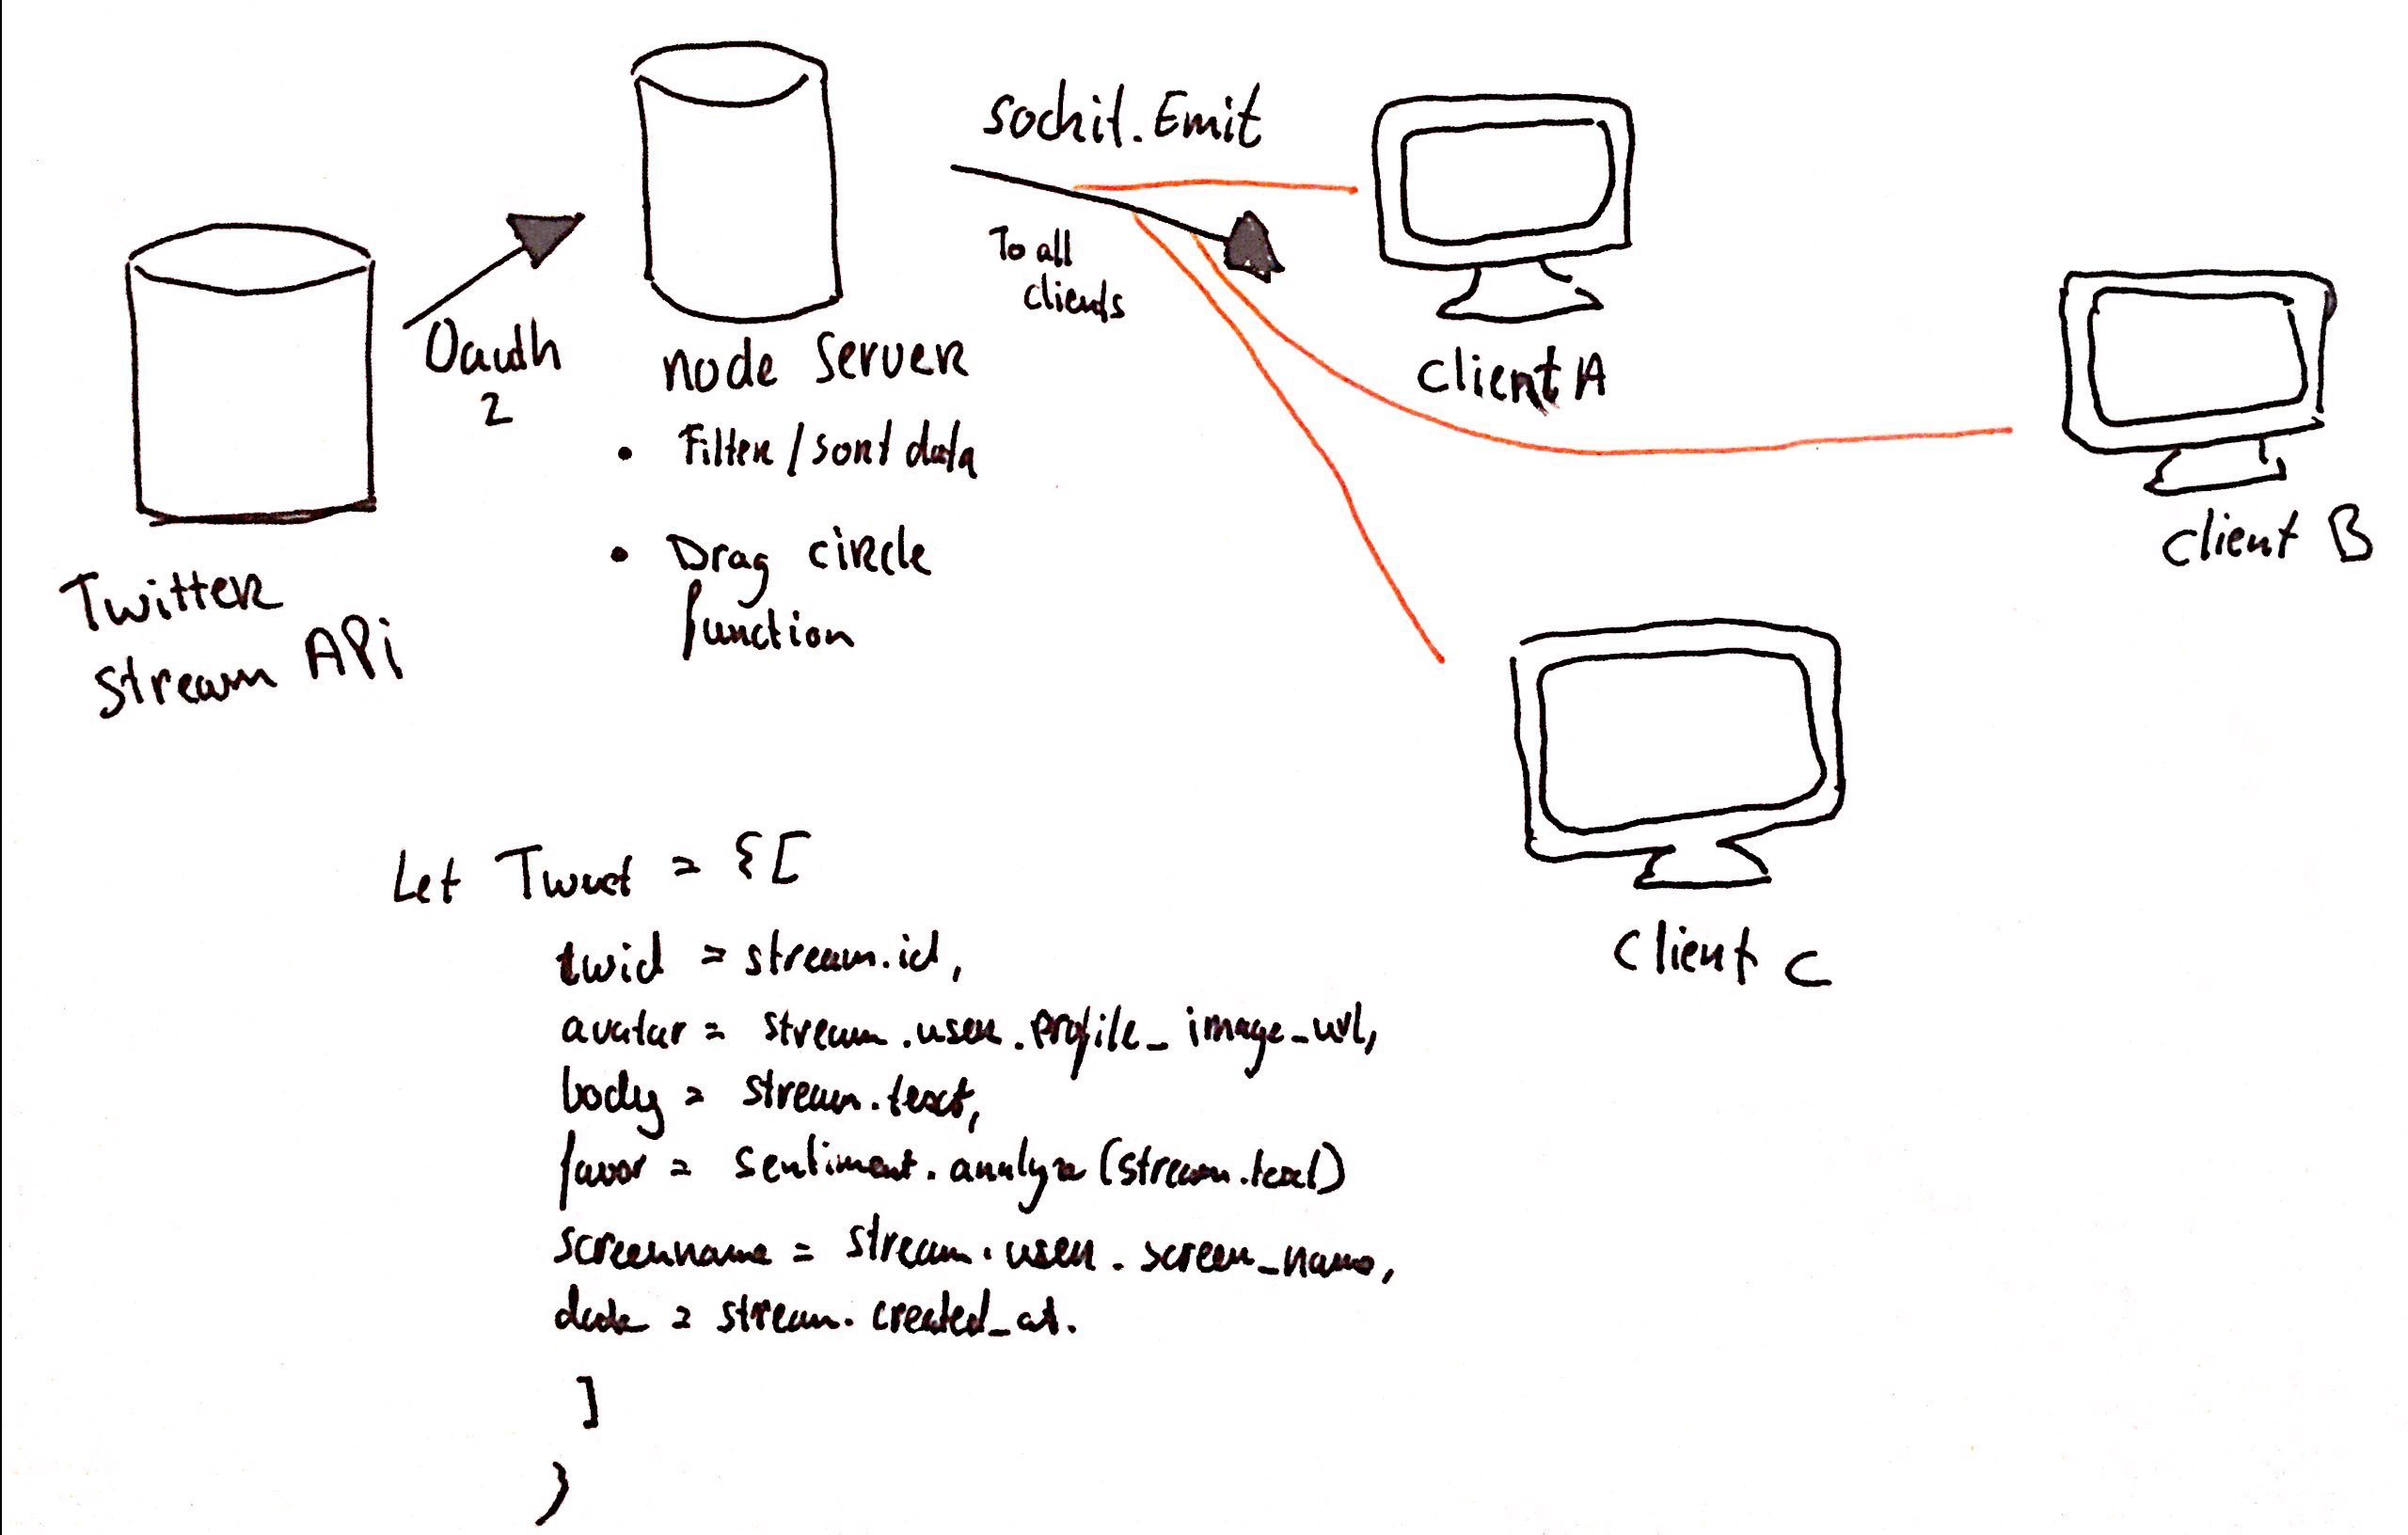 sockit.Emit
To all
clients
Oauth
2
node Server
• Filter/sort data
• Drag circle
function
Twitter
stream APi
client A
client B
client C
Let Tweet = {[
twid = stream.id,
avatar = stream.user.profile_image_url,
body = stream.text,
favor = sentiment.analyze(stream.text)
screenname = stream.user.screen_name,
date = stream.created_at.
]
}